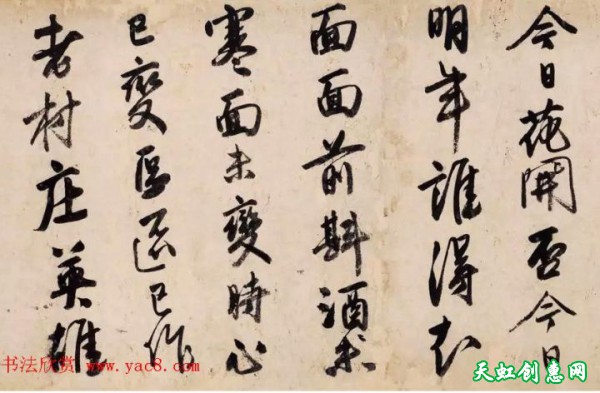 今日花開否今日
明年誰得知
面面前斟酒未
寒面未變時心
已變區區已作
老村庄英雄
书法欣赏 www.yac8.com
天虹创惠网